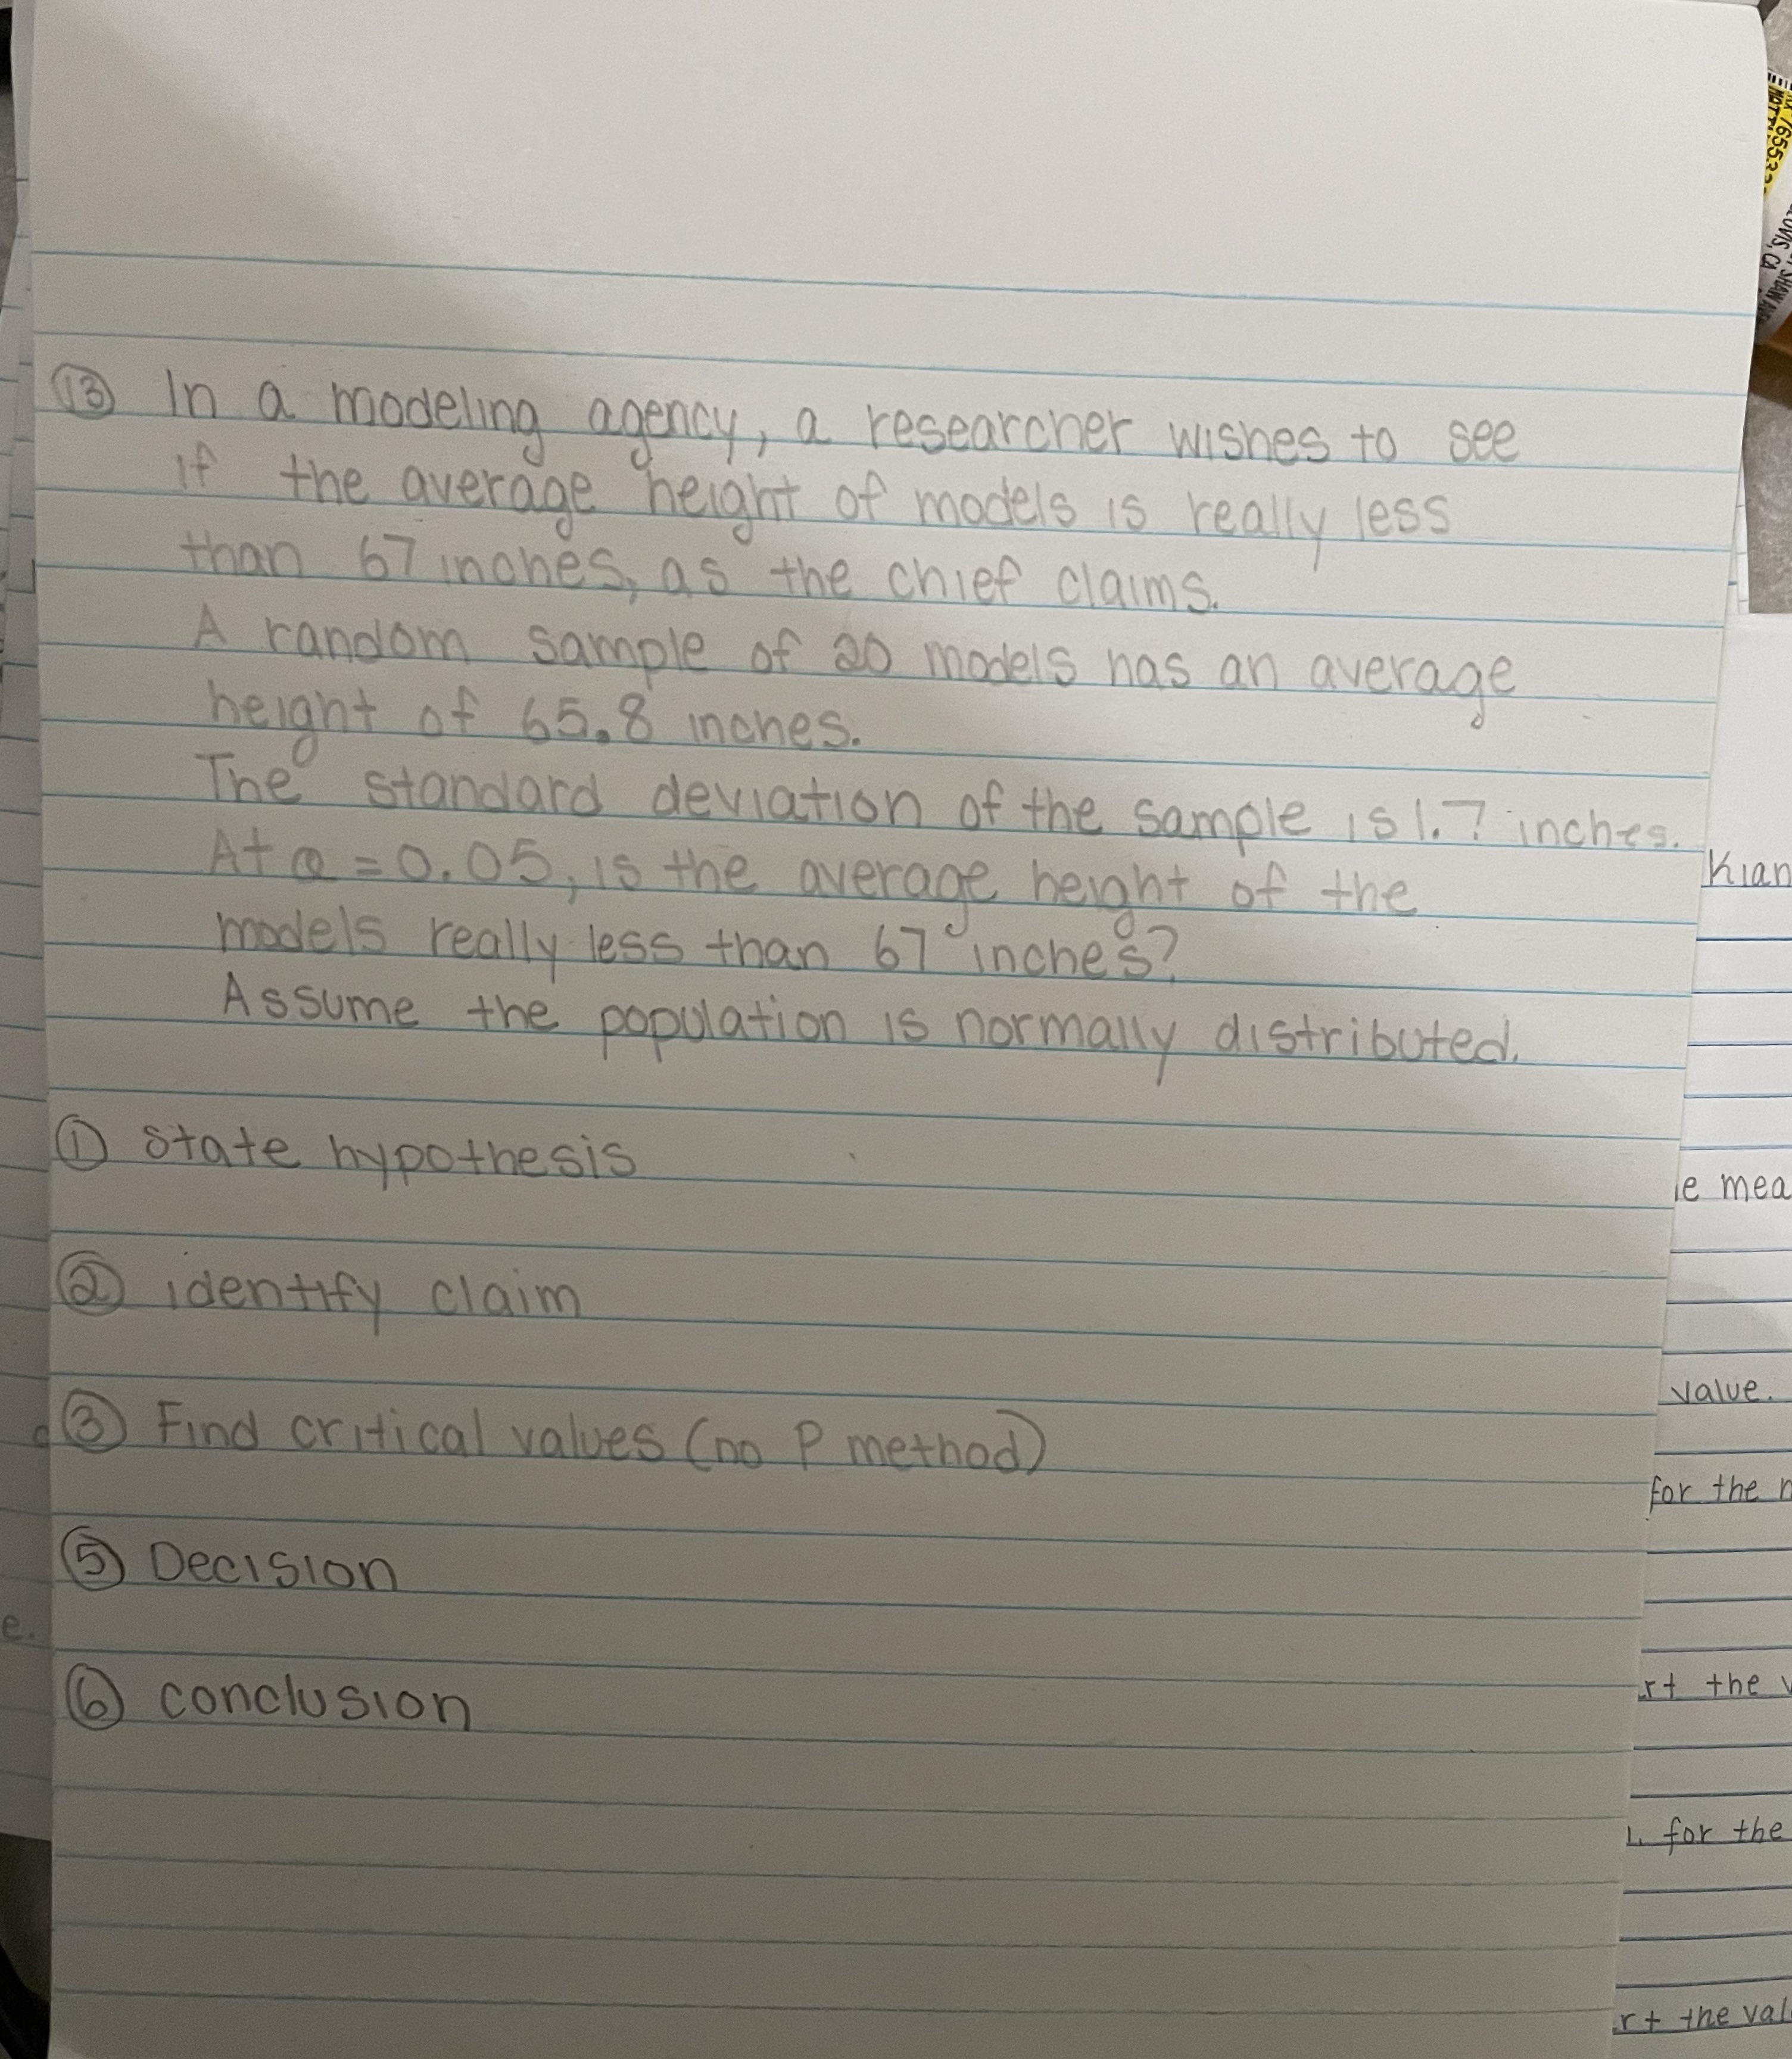 ⑬ In a modeling agency, a researcher wishes to see
if the average height of models is really less
than 67 inches, as the chief claims.
A random sample of 20 models has an average
height of 65.8 inches.
The standard deviation of the sample is 1.7 inches.
At α = 0.05, is the average height of the
models really less than 67 inches?
Assume the population is normally distributed.
① state hypothesis
② identify claim
③ Find critical values (no P method)
⑤ Decision
⑥ conclusion
Kian
mea
value.
for the
the
for the
the val
e.